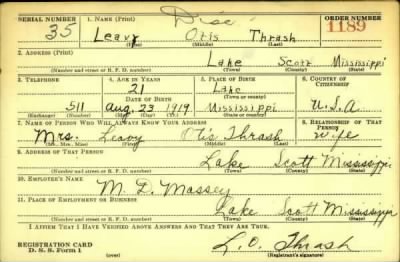 SERIAL NUMBER 1. NAME (Print) Disc ORDER NUMBER
35 Leavy Otis Thrash 1189
(First) (Middle) (Last)
2. ADDRESS (Print)
Lake Scott Mississippi
(Number and street or R. F. D. number) (Town) (County) (State)
3. TELEPHONE 4. AGE IN YEARS 5. PLACE OF BIRTH 6. COUNTRY OF CITIZENSHIP
21 Lake
DATE OF BIRTH (Town or county)
511 Aug 23 1919 Mississippi U.S.A
(Exchange) (Number) (Mo.) (Day) (Yr.) (State or country)
7. NAME OF PERSON WHO WILL ALWAYS KNOW YOUR ADDRESS 8. RELATIONSHIP OF THAT PERSON
Mrs. Leavy Otis Thrash wife
(Mr., Mrs., Miss) (First) (Middle) (Last)
9. ADDRESS OF THAT PERSON
Lake Scott Mississippi
(Number and street or R. F. D. number) (Town) (County) (State)
10. EMPLOYER'S NAME
M. D. Massey
11. PLACE OF EMPLOYMENT OR BUSINESS
Lake Scott Mississippi
(Number and street or R. F. D. number) (Town) (County) (State)
I AFFIRM THAT I HAVE VERIFIED ABOVE ANSWERS AND THAT THEY ARE TRUE.
REGISTRATION CARD L. O. Thrash
D. S. S. Form 1 (over) (Registrant's signature)